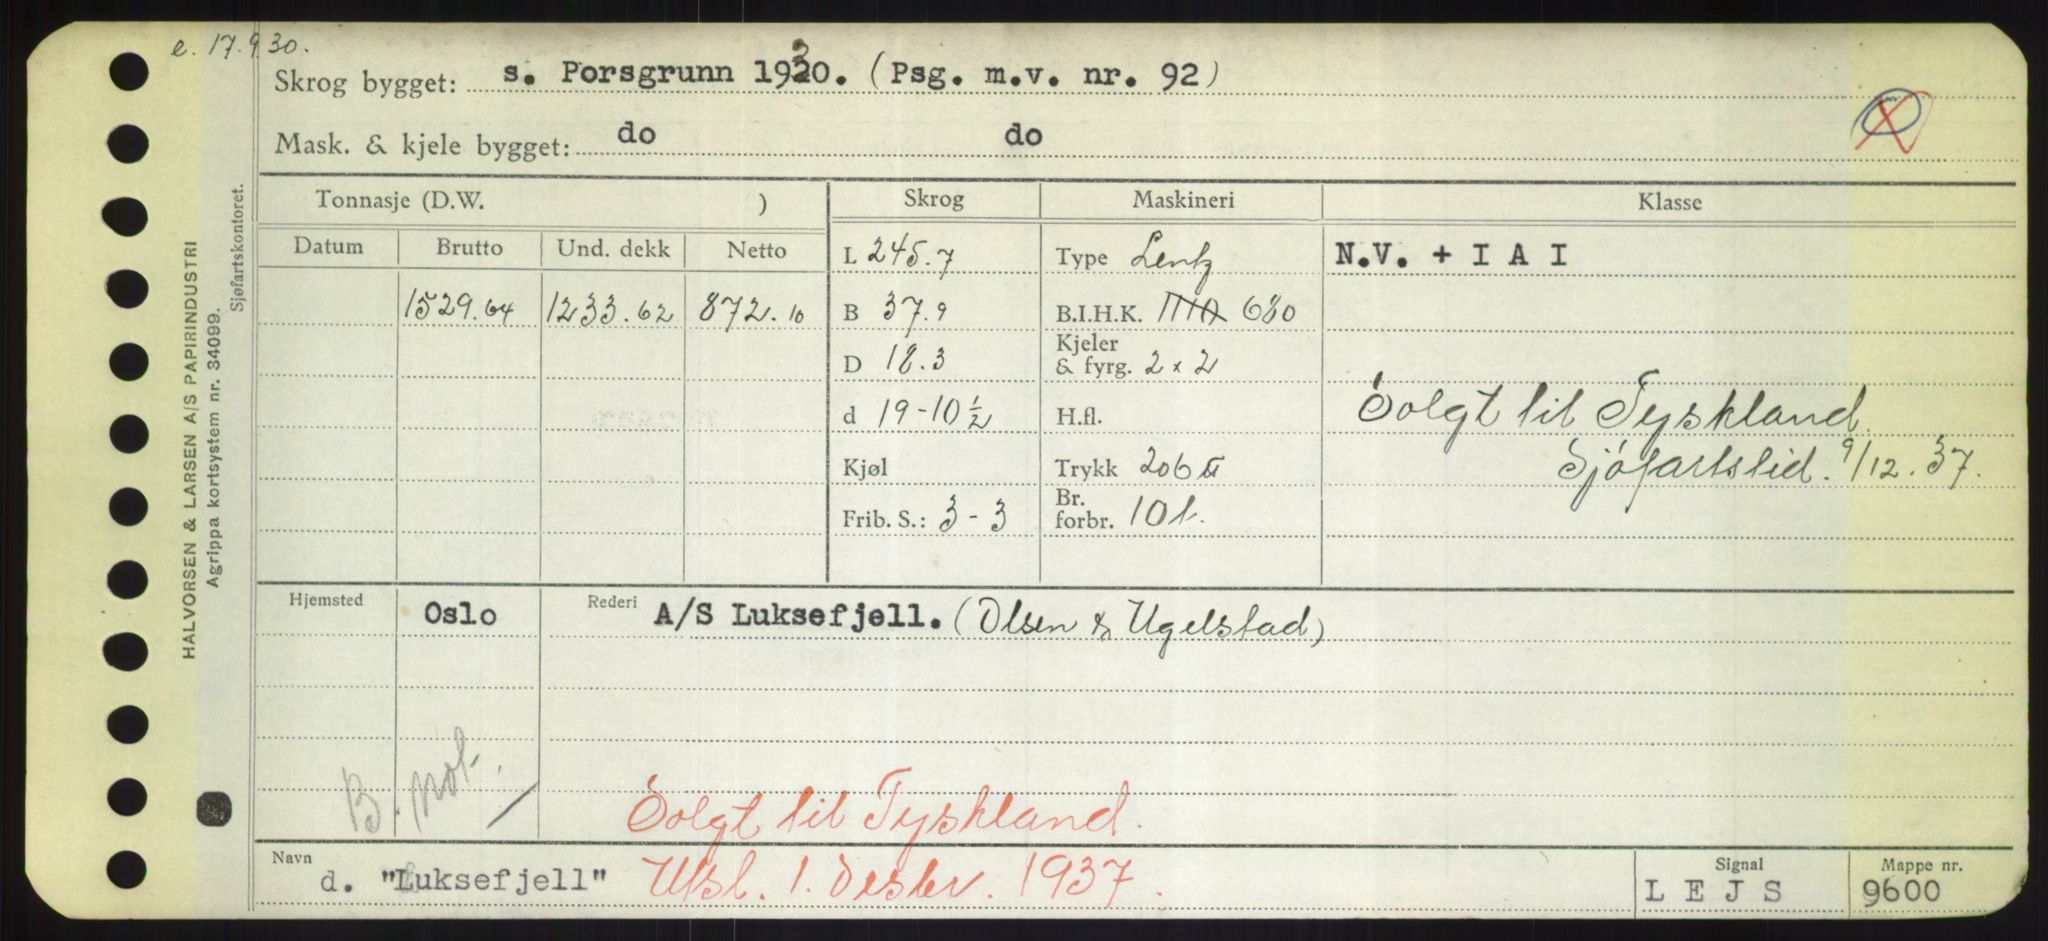 e. 17.9.30.
Skrog bygget: s. Porsgrunn 1930. (Psg. m.v. nr. 92)
Mask. & kjele bygget: do do
Tonnasje (D.W. ) Skrog Maskineri Klasse
Datum Brutto Und. dekk Netto L 245.7 Type Lentz N.V. + I A I
1529.64 1233.62 872.10 B 37.9 B.I.H.K. 1110 680
D 18.3 Kjeler & fyrg. 2 x 2
d 19-10½ H.fl. Solgt til Tyskland.
Kjøl Trykk 206 Sjøfartstid. 9/12.37.
Frib. S.: 3-3 Br. forbr. 10 t.
Hjemsted Oslo Rederi A/S Luksefjell. (Olsen & Ugelstad)
B. not.
Solgt til Tyskland.
Navn d. "Luksefjell" Utsl. 1. desbr. 1937. Signal L E J S Mappe nr. 9600
HALVORSEN & LARSEN A/S PAPIRINDUSTRI
Agrippa kortsystem nr. 34099.
Sjøfartskontoret.